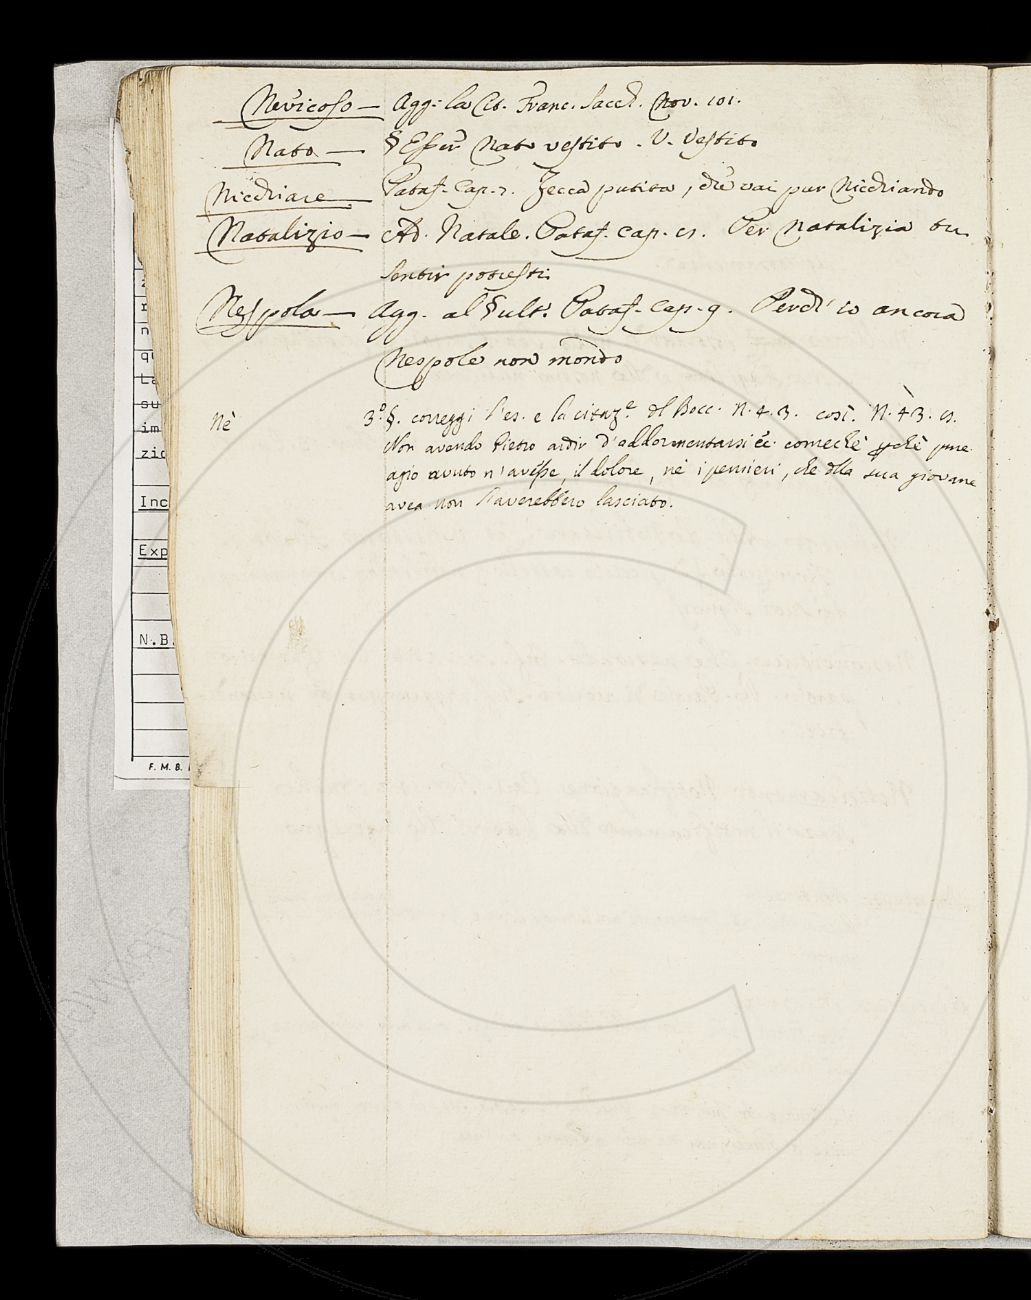 Nevicoso — Agg: la Cit. Franc. Sacch. Nov. 101.
Nato — § Esser Nato vestito. V. Vestito
Nicchiare — Pataf. Cap. 7. Zecca putita, che vai pur Nicchiando
Natalizio — Ad. Natale. Pataf. Cap. es. Per Natalizia tu
sentir potresti
Nespola — Agg. al § ult: Pataf. Cap. 9. Perch' io ancora
Nespole non mondo
Nè 3.° §. correggi l'es. e la citaz.e del Bocc. N. 4. 3. così. N. 43. es.
Non avendo Pietro ardir d'addormentarsi &c. comechè perchè pure
agio avuto n'avesse, il dolore, nè i pensieri, che della sua giovane
avea non l'averebbero lasciato.
n
qu
La
su
im
zio
Inc
Exp
N.B.
F. M. B.
C